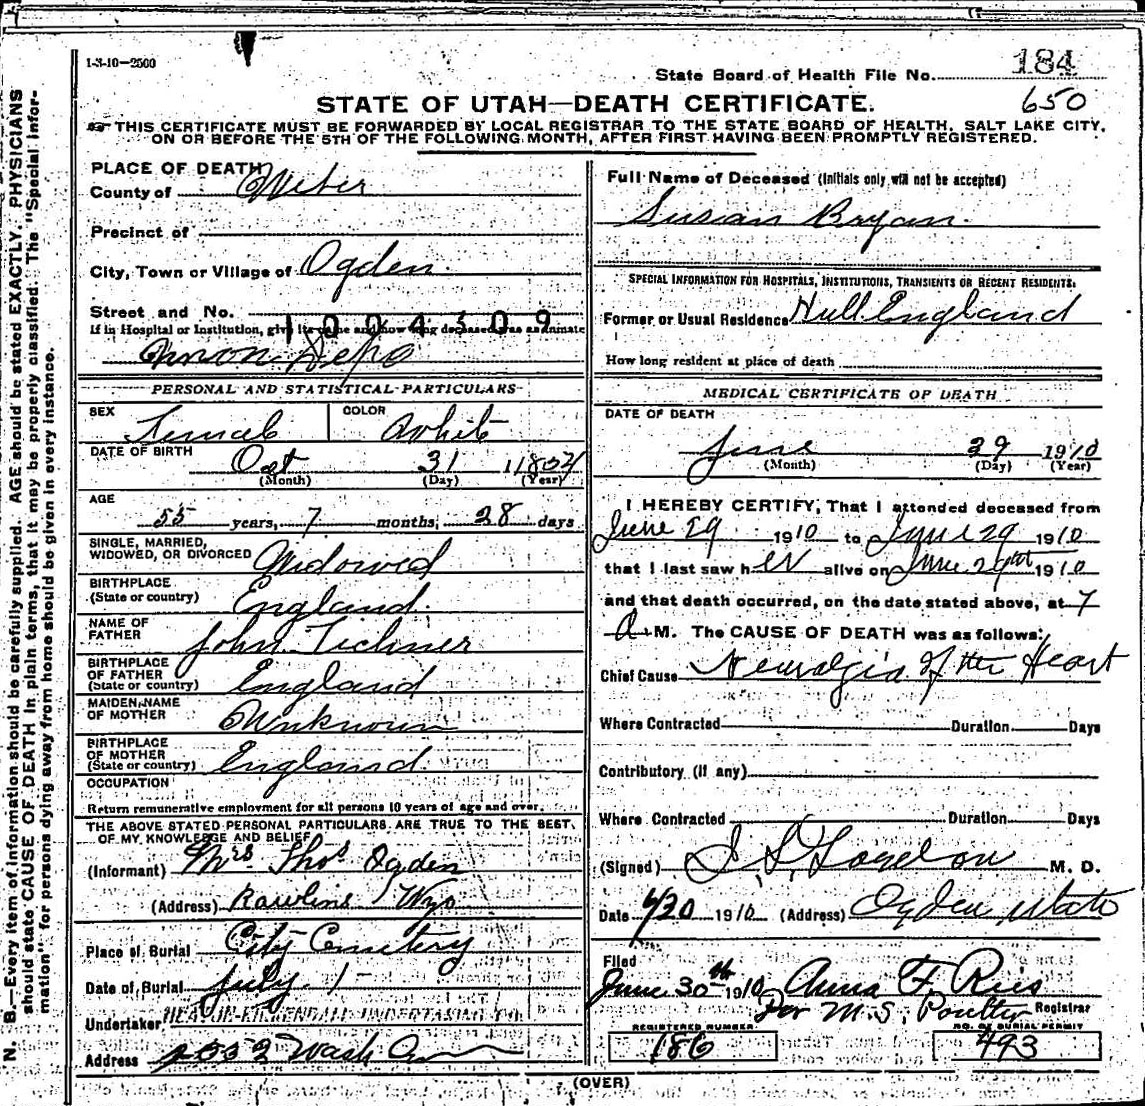 1-3-10-2500
State Board of Health File No. 184
650
STATE OF UTAH—DEATH CERTIFICATE.
THIS CERTIFICATE MUST BE FORWARDED BY LOCAL REGISTRAR TO THE STATE BOARD OF HEALTH, SALT LAKE CITY,
ON OR BEFORE THE 5TH OF THE FOLLOWING MONTH, AFTER FIRST HAVING BEEN PROMPTLY REGISTERED.
N. B.—Every item of information should be carefully supplied. AGE should be stated EXACTLY. PHYSICIANS
should state CAUSE OF DEATH in plain terms, that it may be properly classified. The "Special Infor-
mation" for persons dying away from home should be given in every instance.
PLACE OF DEATH
County of Weber
Precinct of
City, Town or Village of Ogden
Street and No.
1004309
If in Hospital or Institution, give its name and how long deceased was an inmate
Union Depo
PERSONAL AND STATISTICAL PARTICULARS
SEX Female COLOR White
DATE OF BIRTH Oct 31 1854
(Month) (Day) (Year)
AGE
55 years, 7 months, 28 days
SINGLE, MARRIED,
WIDOWED, OR DIVORCED Widowed
BIRTHPLACE
(State or country) England
NAME OF
FATHER John Tichner
BIRTHPLACE
OF FATHER
(State or country) England
MAIDEN NAME
OF MOTHER Unknown
BIRTHPLACE
OF MOTHER
(State or country) England
OCCUPATION
Return remunerative employment for all persons 10 years of age and over.
THE ABOVE STATED PERSONAL PARTICULARS ARE TRUE TO THE BEST
OF MY KNOWLEDGE AND BELIEF
(Informant) Mrs Thos Ogden
(Address) Rawlins Wyo
Place of Burial City Cemetery
Date of Burial July 1-
Undertaker UNDERTAKING CO.
Address 2552 Wash
Full Name of Deceased (Initials only will not be accepted)
Susian Bryan
SPECIAL INFORMATION FOR HOSPITALS, INSTITUTIONS, TRANSIENTS OR RECENT RESIDENTS.
Former or Usual Residence Hull England
How long resident at place of death
MEDICAL CERTIFICATE OF DEATH
DATE OF DEATH
June 29 1910
(Month) (Day) (Year)
I HEREBY CERTIFY, That I attended deceased from
June 29 1910 to June 29 1910
that I last saw her alive on June 29th 1910
and that death occurred, on the date stated above, at 7
A. M. The CAUSE OF DEATH was as follows:
Chief Cause Neuralgia of the Heart
Where Contracted Duration Days
Contributory (if any)
Where Contracted Duration Days
(Signed) M. D.
Date 6/30 1910 (Address) Ogden, Utah
Filed
June 30th 1910 Anna F. Ries
Per M.S. Poulter Registrar
REGISTERED NUMBER NO. OF BURIAL PERMIT
186 493
(OVER)